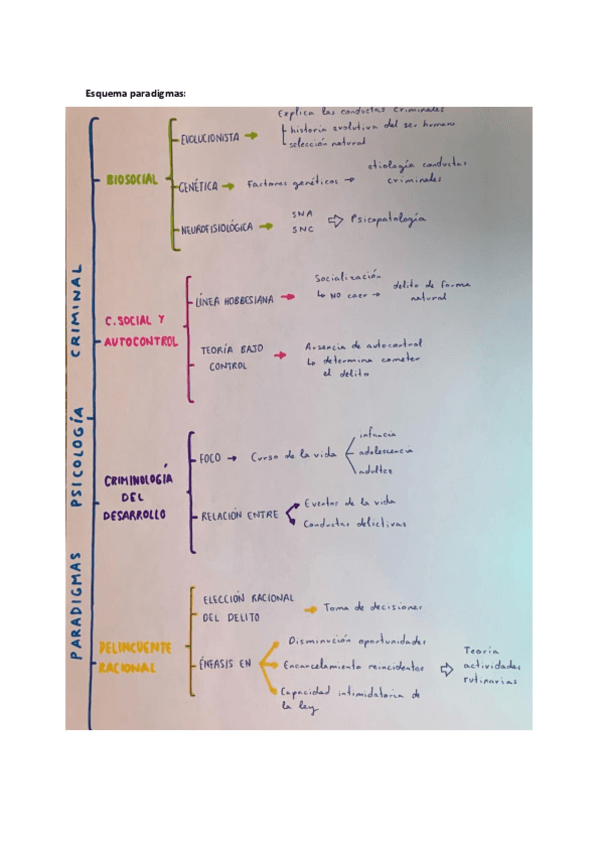 Esquema paradigmas:
PARADIGMAS PSICOLOGÍA CRIMINAL
BIOSOCIAL
EVOLUCIONISTA →
Explica las conductas criminales
historia evolutiva del ser humano
selección natural
GENÉTICA → Factores genéticos →
etiología conductas
criminales
NEUROFISIOLÓGICA →
SNA
SNC
⇒ Psicopatología
C. SOCIAL Y
AUTOCONTROL
LÍNEA HOBBESIANA →
Socialización
↳ NO caer →
delito de forma
natural
TEORÍA BAJO
CONTROL
→
Ausencia de autocontrol
↳ determina cometer
el delito
CRIMINOLOGÍA
DEL
DESARROLLO
FOCO → Curso de la vida
infancia
adolescencia
adultez
RELACIÓN ENTRE
Eventos de la vida
Conductas delictivas
DELINCUENTE
RACIONAL
ELECCIÓN RACIONAL
DEL DELITO
→ Toma de decisiones
ÉNFASIS EN
Disminución oportunidades
Encarcelamiento reincidentes
Capacidad intimidatoria de
la ley
⇒
Teoría
actividades
rutinarias